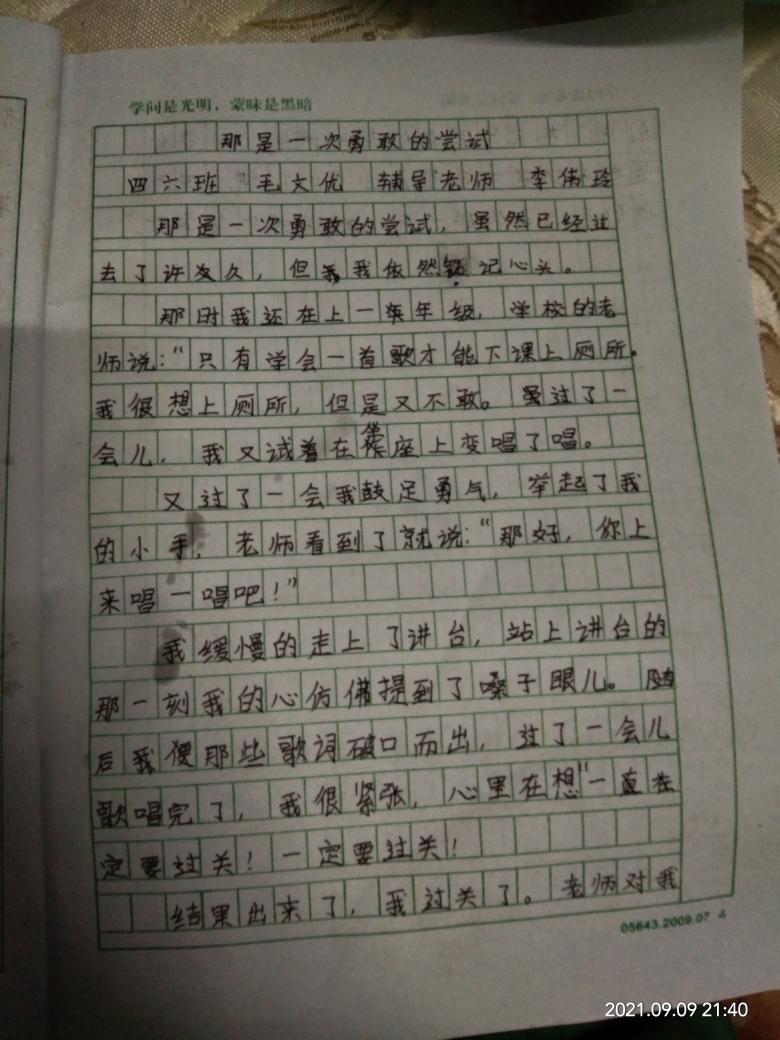 学问是光明，蒙昧是黑暗
那是一次勇敢的尝试
四六班 毛文优 辅导老师 李伟玲
那是一次勇敢的尝试，虽然已经过
去了许久，但我依然铭记心头。
那时我还在上一年级，学校的老
师说：“只有学会一首歌才能下课上厕所。
我很想上厕所，但是又不敢。过了一
会儿，我又试着在坐座上变唱了唱。
又过了一会我鼓足勇气，举起了我
的小手，老师看到了就说：“那好，你上
来唱一唱吧！”
我缓慢的走上了讲台，站上讲台的
那一刻我的心仿佛提到了嗓子眼儿。随
后我便那些歌词破口而出，过了一会儿
歌唱完了，我很紧张，心里在想“一直在
定要过关！一定要过关！
结果出来了，我过关了。老师对我
05643.2009.07 4
2021.09.09 21:40